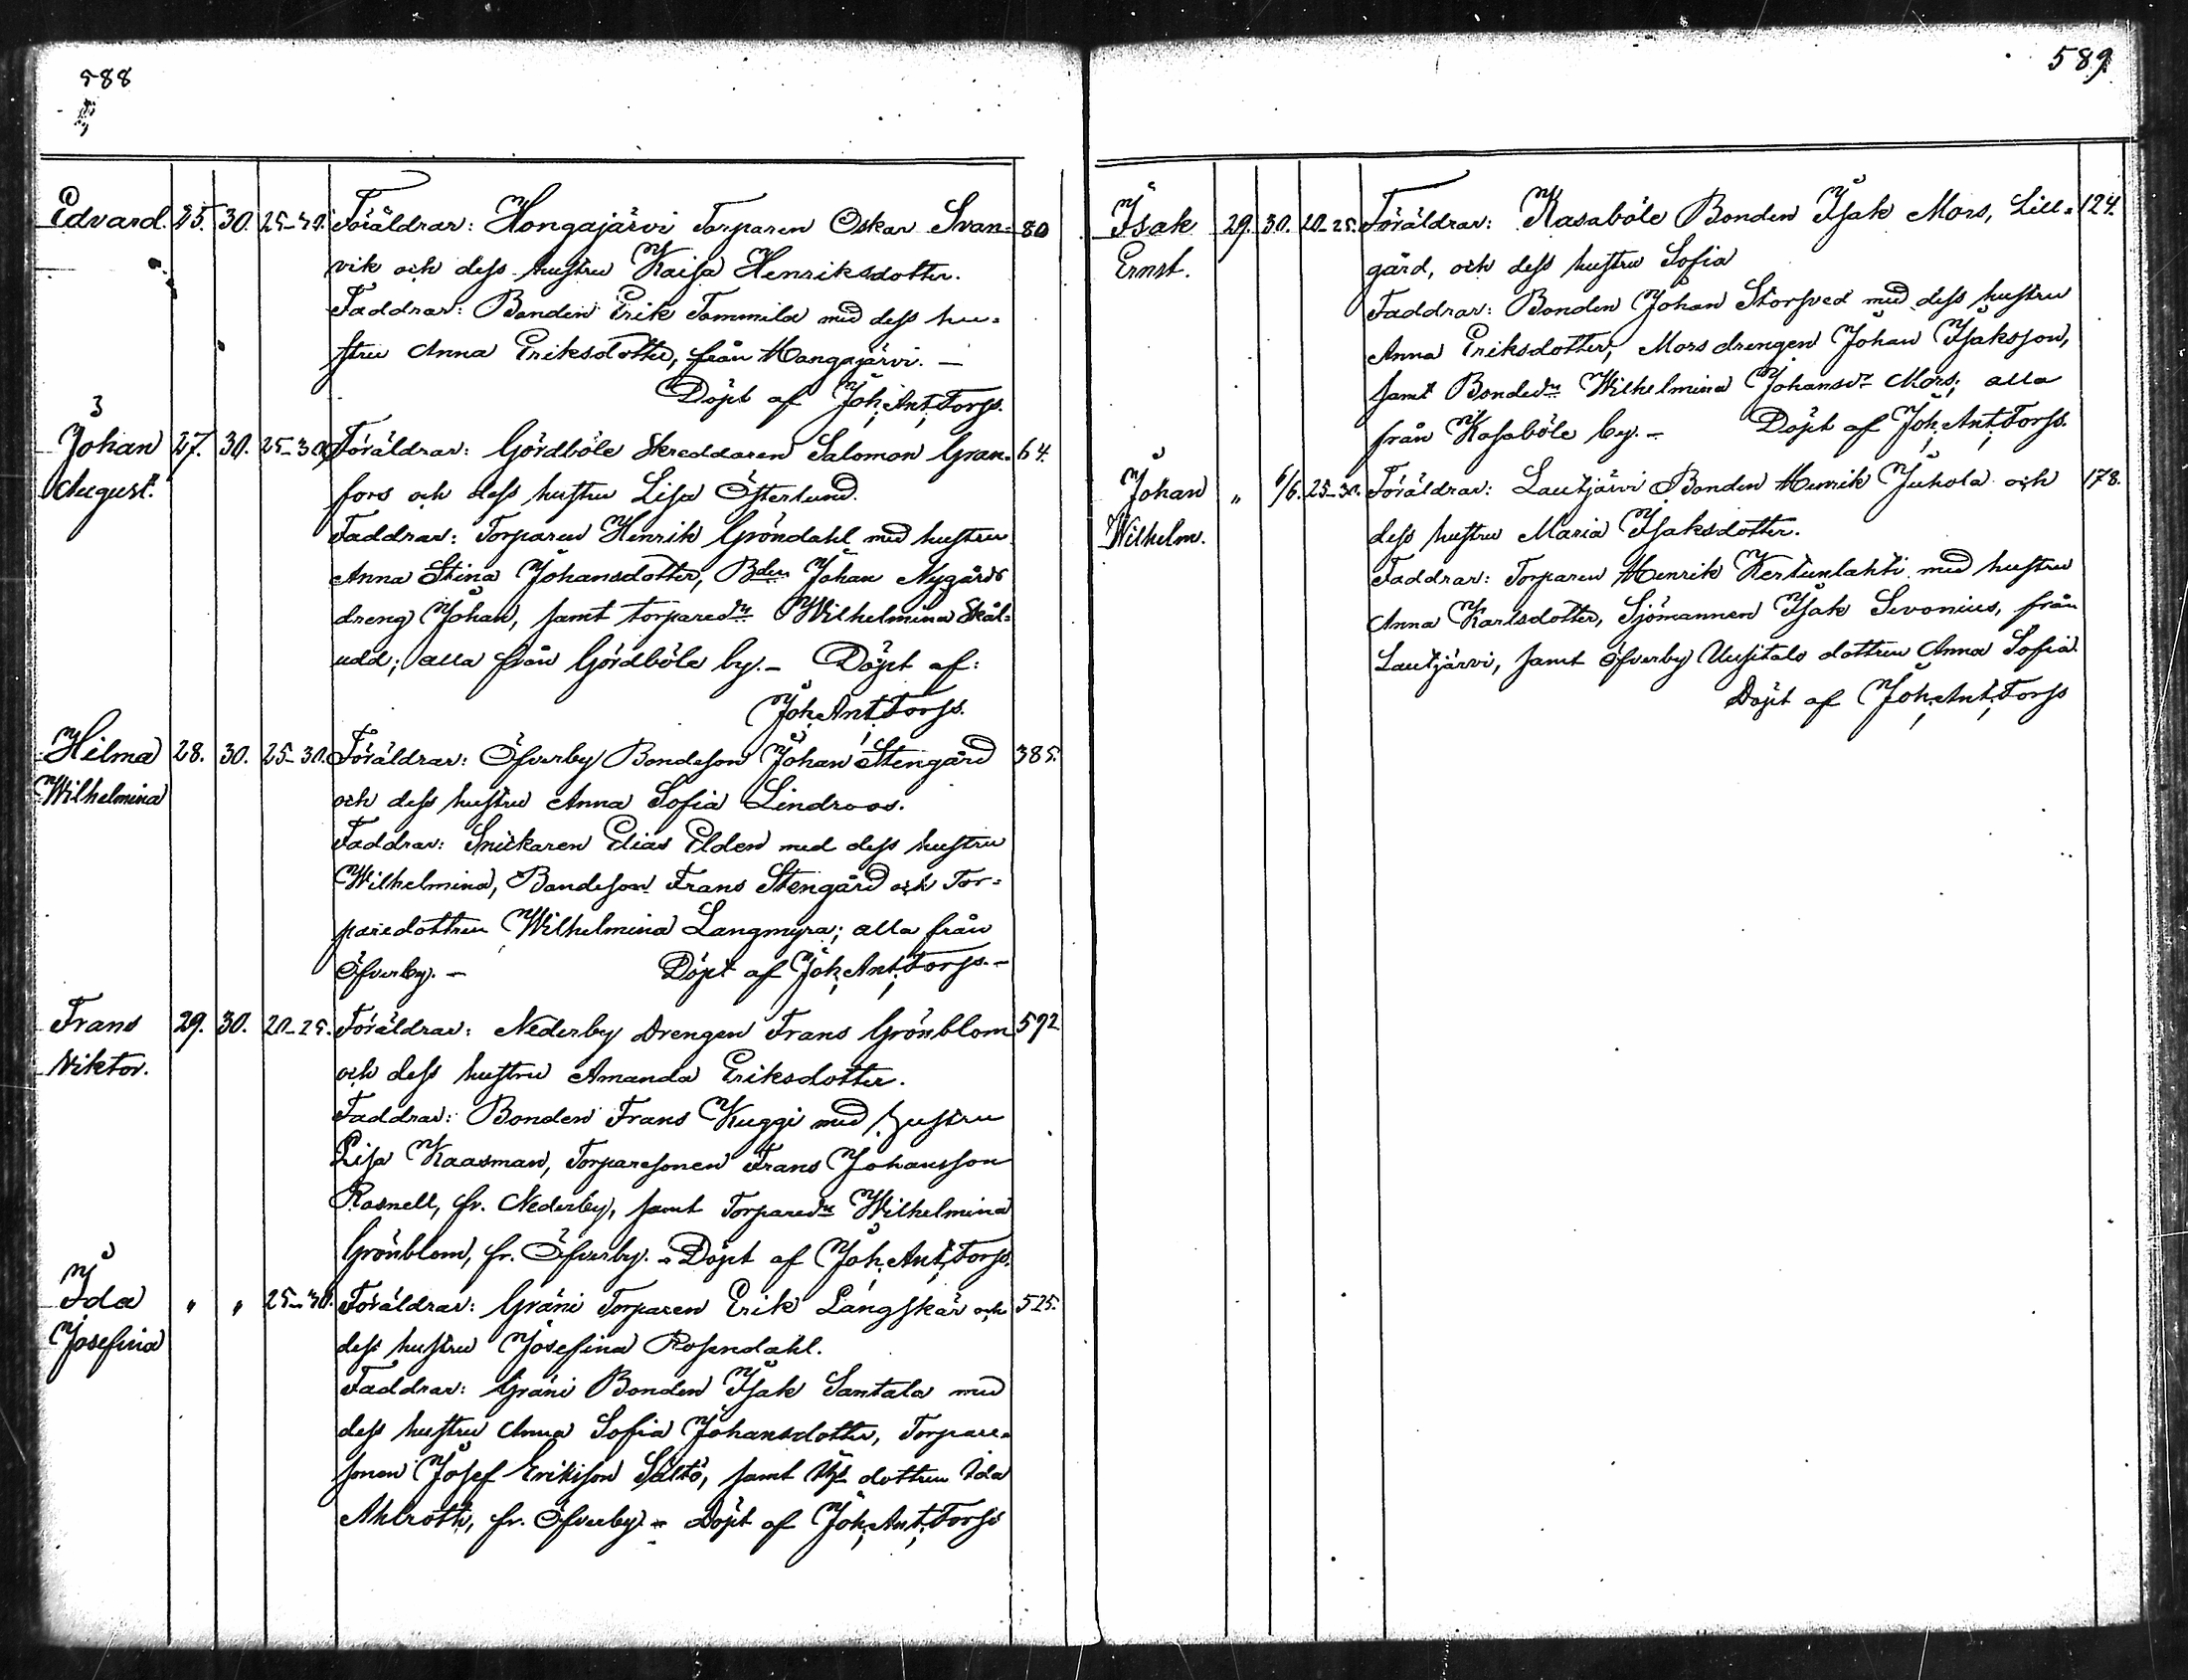 588
Edvard. 25. 30. 25-30. Föräldrar: Hongajärvi Torparen Oskar Svan= 80
vik och dess hustru Kaisa Henriksdotter.
Faddrar: Bonden Erik Tommila med dess hu=
stru Anna Eriksdotter, från Hangajärvi. —
Döpt af Joh. Ant. Forss.
Johan 27. 30. 25-30. Föräldrar: Gördböle Skreddaren Salomon Gran= 64.
August. fors och dess hustru Lisa Österlund.
Faddrar: Torparen Henrik Gröndahl med hustru
Anna Stina Johansdotter, Bden Johan Nygårds
dreng Johan, samt torparedr Wilhelmina Skål=
udd; alla från Gördböle by. — Döpt af:
Joh. Ant. Forss.
Hilma 28. 30. 25-30. Föräldrar: Öfverby Bondeson Johan Stengård 385.
Wilhelmina och dess hustru Anna Sofia Lindroos.
Faddrar: Snickaren Elias Elden med dess hustru
Wilhelmina, Bondeson Frans Stengård och Tor=
paredottren Wilhelmina Langmyra; alla från
Öfverby. — Döpt af Joh. Ant. Forss. —
Frans 29. 30. 20-25. Föräldrar: Nederby Drengen Frans Grönblom 592
Viktor. och dess hustru Amanda Eriksdotter.
Faddrar: Bonden Frans Kuggi med hustru
Lisa Kaasman, Torparesonen Frans Johansson
Rosnell, fr. Nederby, samt Torparedr Wilhelmina
Grönblom, fr. Öfverby. — Döpt af Joh. Ant. Forss.
Ida " " 25-30. Föräldrar: Gräni Torparen Erik Långskär och 525.
Josefina dess hustru Josefina Rosendahl.
Faddrar: Gräni Bonden Isak Santala med
dess hustru Anna Sofia Johansdotter, Torpare=
sonen Josef Eriksson Sältö, samt dottren Ida
Ahlroth, fr. Öfverby. — Döpt af Joh. Ant. Forss
589
Isak 29. 30. 20-25. Föräldrar: Kasaböle Bonden Isak Mors, Lill= 124.
Ernst. gård, och dess hustru Sofia
Faddrar: Bonden Johan Storsved med dess hustru
Anna Eriksdotter, Mors drengen Johan Isaksson,
samt Bondedr Wilhelmina Johansdr Mors; alla
från Kasaböle by. — Döpt af Joh. Ant. Forss.
Johan " 1/6. 25-30. Föräldrar: Lautjärvi Bonden Henrik Juhola och 178.
Wilhelm. dess hustru Maria Isaksdotter.
Faddrar: Torparen Henrik Kertunlahti med hustru
Anna Karlsdotter, Sjömannen Isak Sevonius, från
Lautjärvi, samt Öfverby Uusitalo dottren Anna Sofia.
Döpt af Joh. Ant. Forss